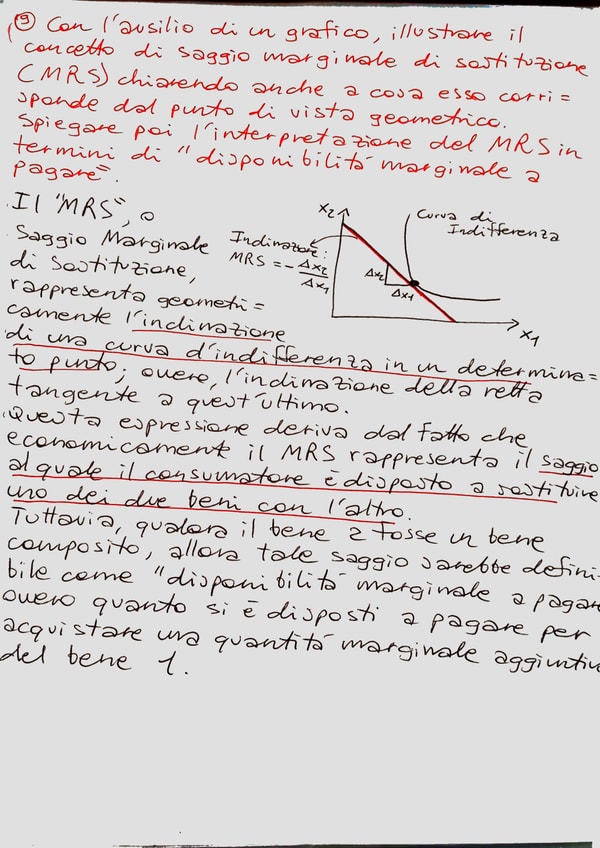 (9) Con l'ausilio di un grafico, illustrare il
concetto di saggio marginale di sostituzione
(MRS) chiarendo anche a cosa esso corri=
sponde dal punto di vista geometrico.
Spiegare poi l'interpretazione del MRS in
termini di "disponibilitá marginale a
pagare".
Il "MRS", o
Saggio Marginale
di Sostituzione,
rappresenta geometri=
camente l'inclinazione
di una curva d'indifferenza in un determina=
to punto; ovvero, l'inclinazione della retta
tangente a quest'ultimo.
Questa espressione deriva dal fatto che
economicamente il MRS rappresenta il saggio
al quale il consumatore è disposto a sostituire
uno dei due beni con l'altro.
Tuttavia, qualora il bene 2 fosse un bene
composito, allora tale saggio sarebbe defini-
bile come "disponibilitá marginale a pagare
ovvero quanto si è disposti a pagare per
acquistare una quantitá marginale aggiuntiv
del bene 1.
x2
Curva di
Indifferenza
Inclinazione:
MRS = - Δx2
Δx1
Δx2
Δx1
x1